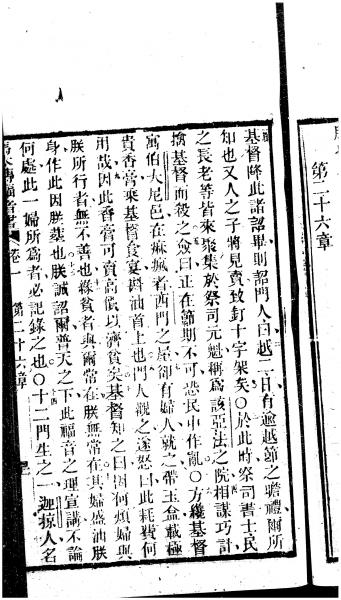 第二十六章
基督降此諸詔畢則詔門人曰越二日有逾越節之瞻禮爾所
知也又人之子將見賣致釘十字架矣○於此時祭司書士民
之長老等皆來聚集於祭司元魁稱爲該亞法之院相謀巧計
擒基督而殺之僉曰正在節期不可恐民中作亂○方纔基督
寓伯大尼邑在痳瘋者西門之屋卻有婦人就之帶玉盒載極
貴香膏乘基督食宴斟油首上也門人觀之遂怒曰此耗費何
用哉因此香膏可賣高價以濟貧矣基督知之曰因何煩婦與
朕所行者無不善也緣貧者與爾常在朕無常在其婦盛油朕
身作此因朕葬也朕誠詔爾普天之下此福音之理宣講不論
何處此一婦所爲者必記錄之也○十二門生之一迦掠人名
馬太傳福音書 卷一 第二十六章